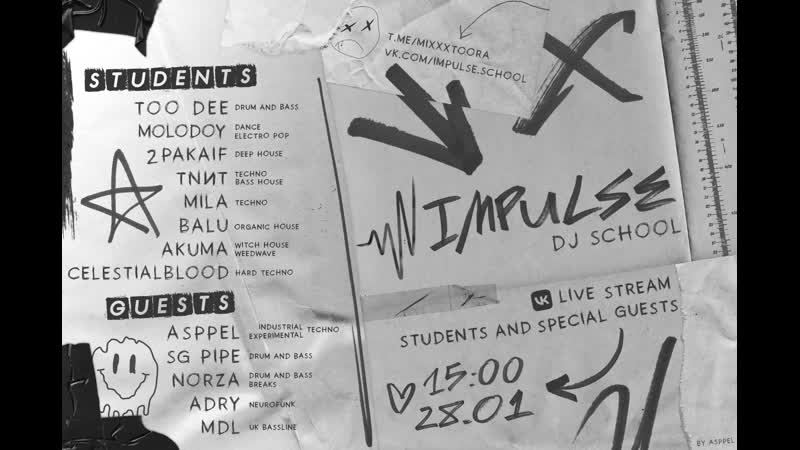 STUDENTS
TOO DEE DRUM AND BASS
MOLODOY DANCE
ELECTRO POP
2PAKAIF DEEP HOUSE
TNИT TECHNO
BASS HOUSE
MILA TECHNO
BALU ORGANIC HOUSE
AKUMA WITCH HOUSE
WEEDWAVE
CELESTIALBLOOD HARD TECHNO
GUESTS
ASPPEL INDUSTRIAL TECHNO
EXPERIMENTAL TECHNO
SG PIPE DRUM AND BASS
NORZA DRUM AND BASS
BREAKS
ADRY NEUROFUNK
MDL UK BASSLINE
T.ME/MIXXXTOORA
VK.COM/IMPULSE.SCHOOL
IMPULSE
DJ SCHOOL
VK LIVE STREAM
STUDENTS AND SPECIAL GUESTS
15:00
28.01
BY ASPPEL